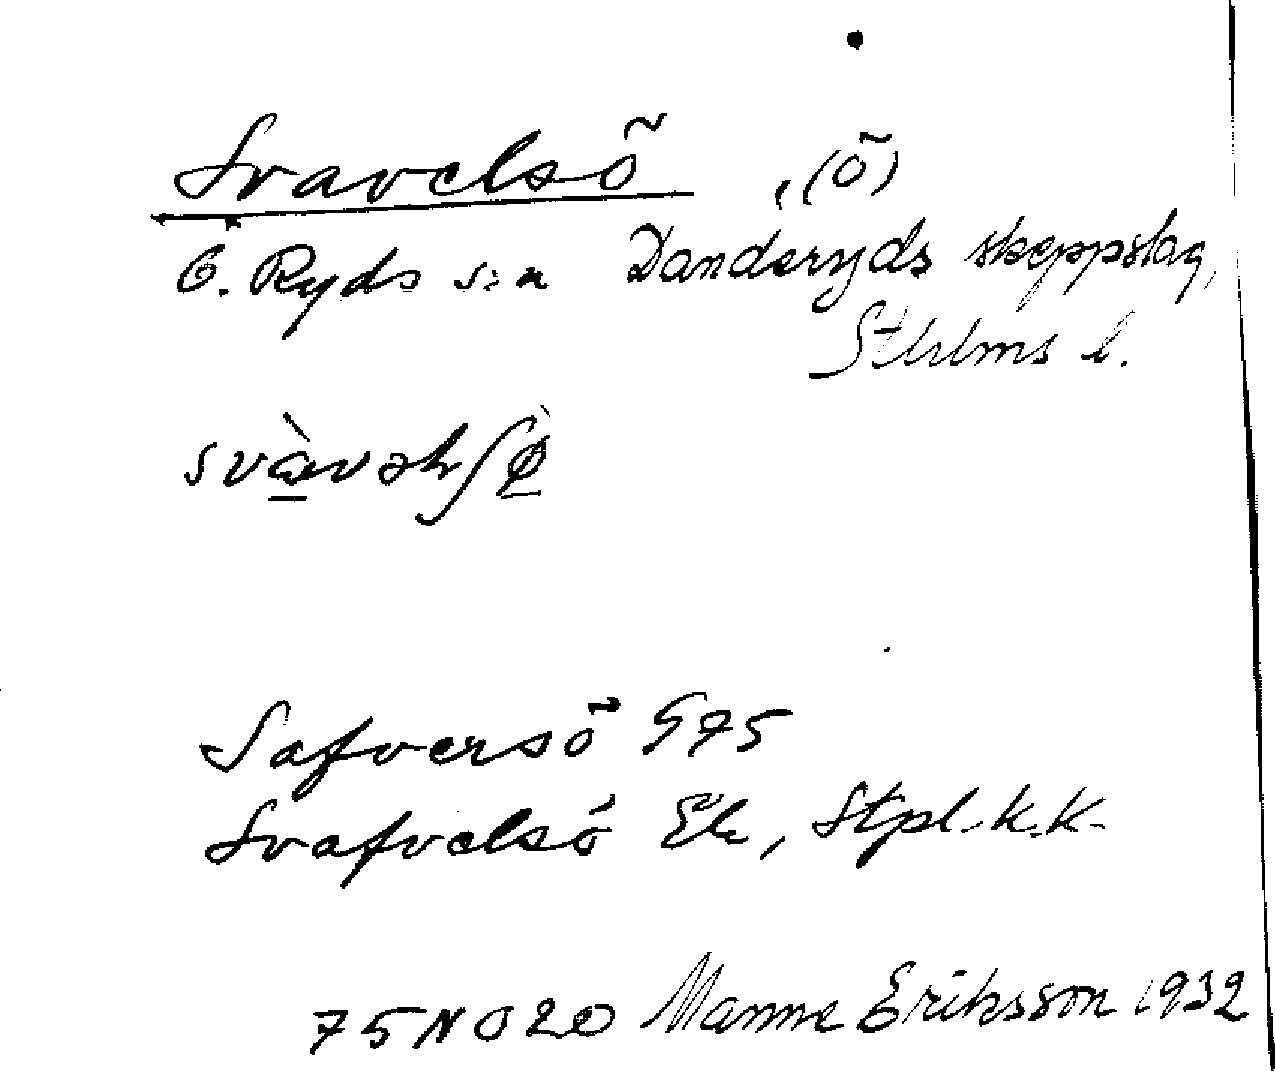 Svavelsö , (ö)
Ö. Ryds sn Danderyds skeppslag,
Sthlms l.
Safversö G75
Svafvelsö Ek, Stpl. k.k.
75NO20 Manne Eriksson 1932